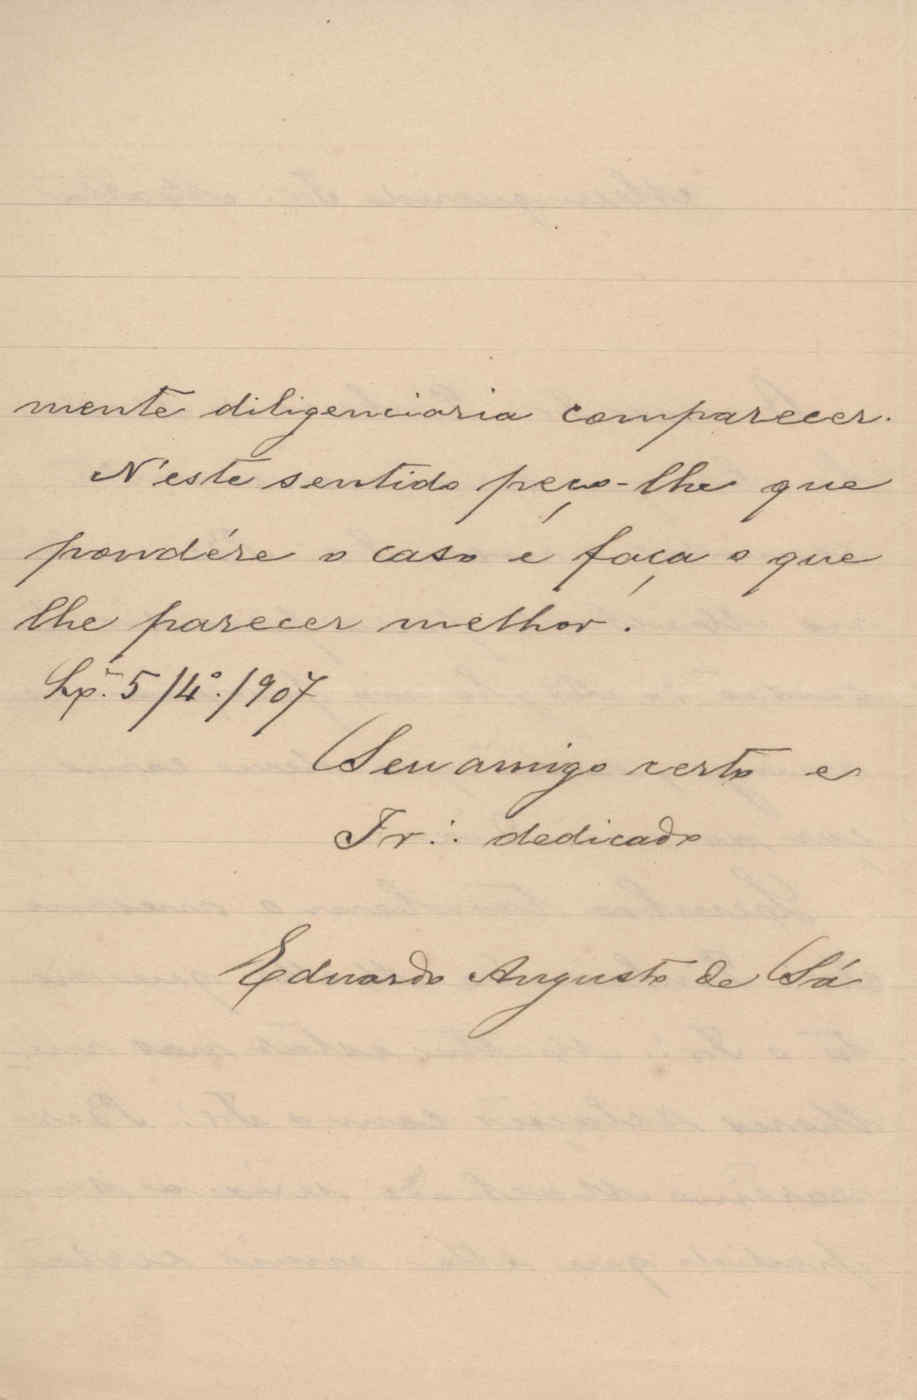 mente diligenciaria comparecer.
N'este sentido peço-lhe que
pondére o caso e faça o que
lhe parecer melhor.
Lxª. 5/4º./907
Seu amigo certo e
Ir∴ dedicado
Eduardo Augusto de Sá